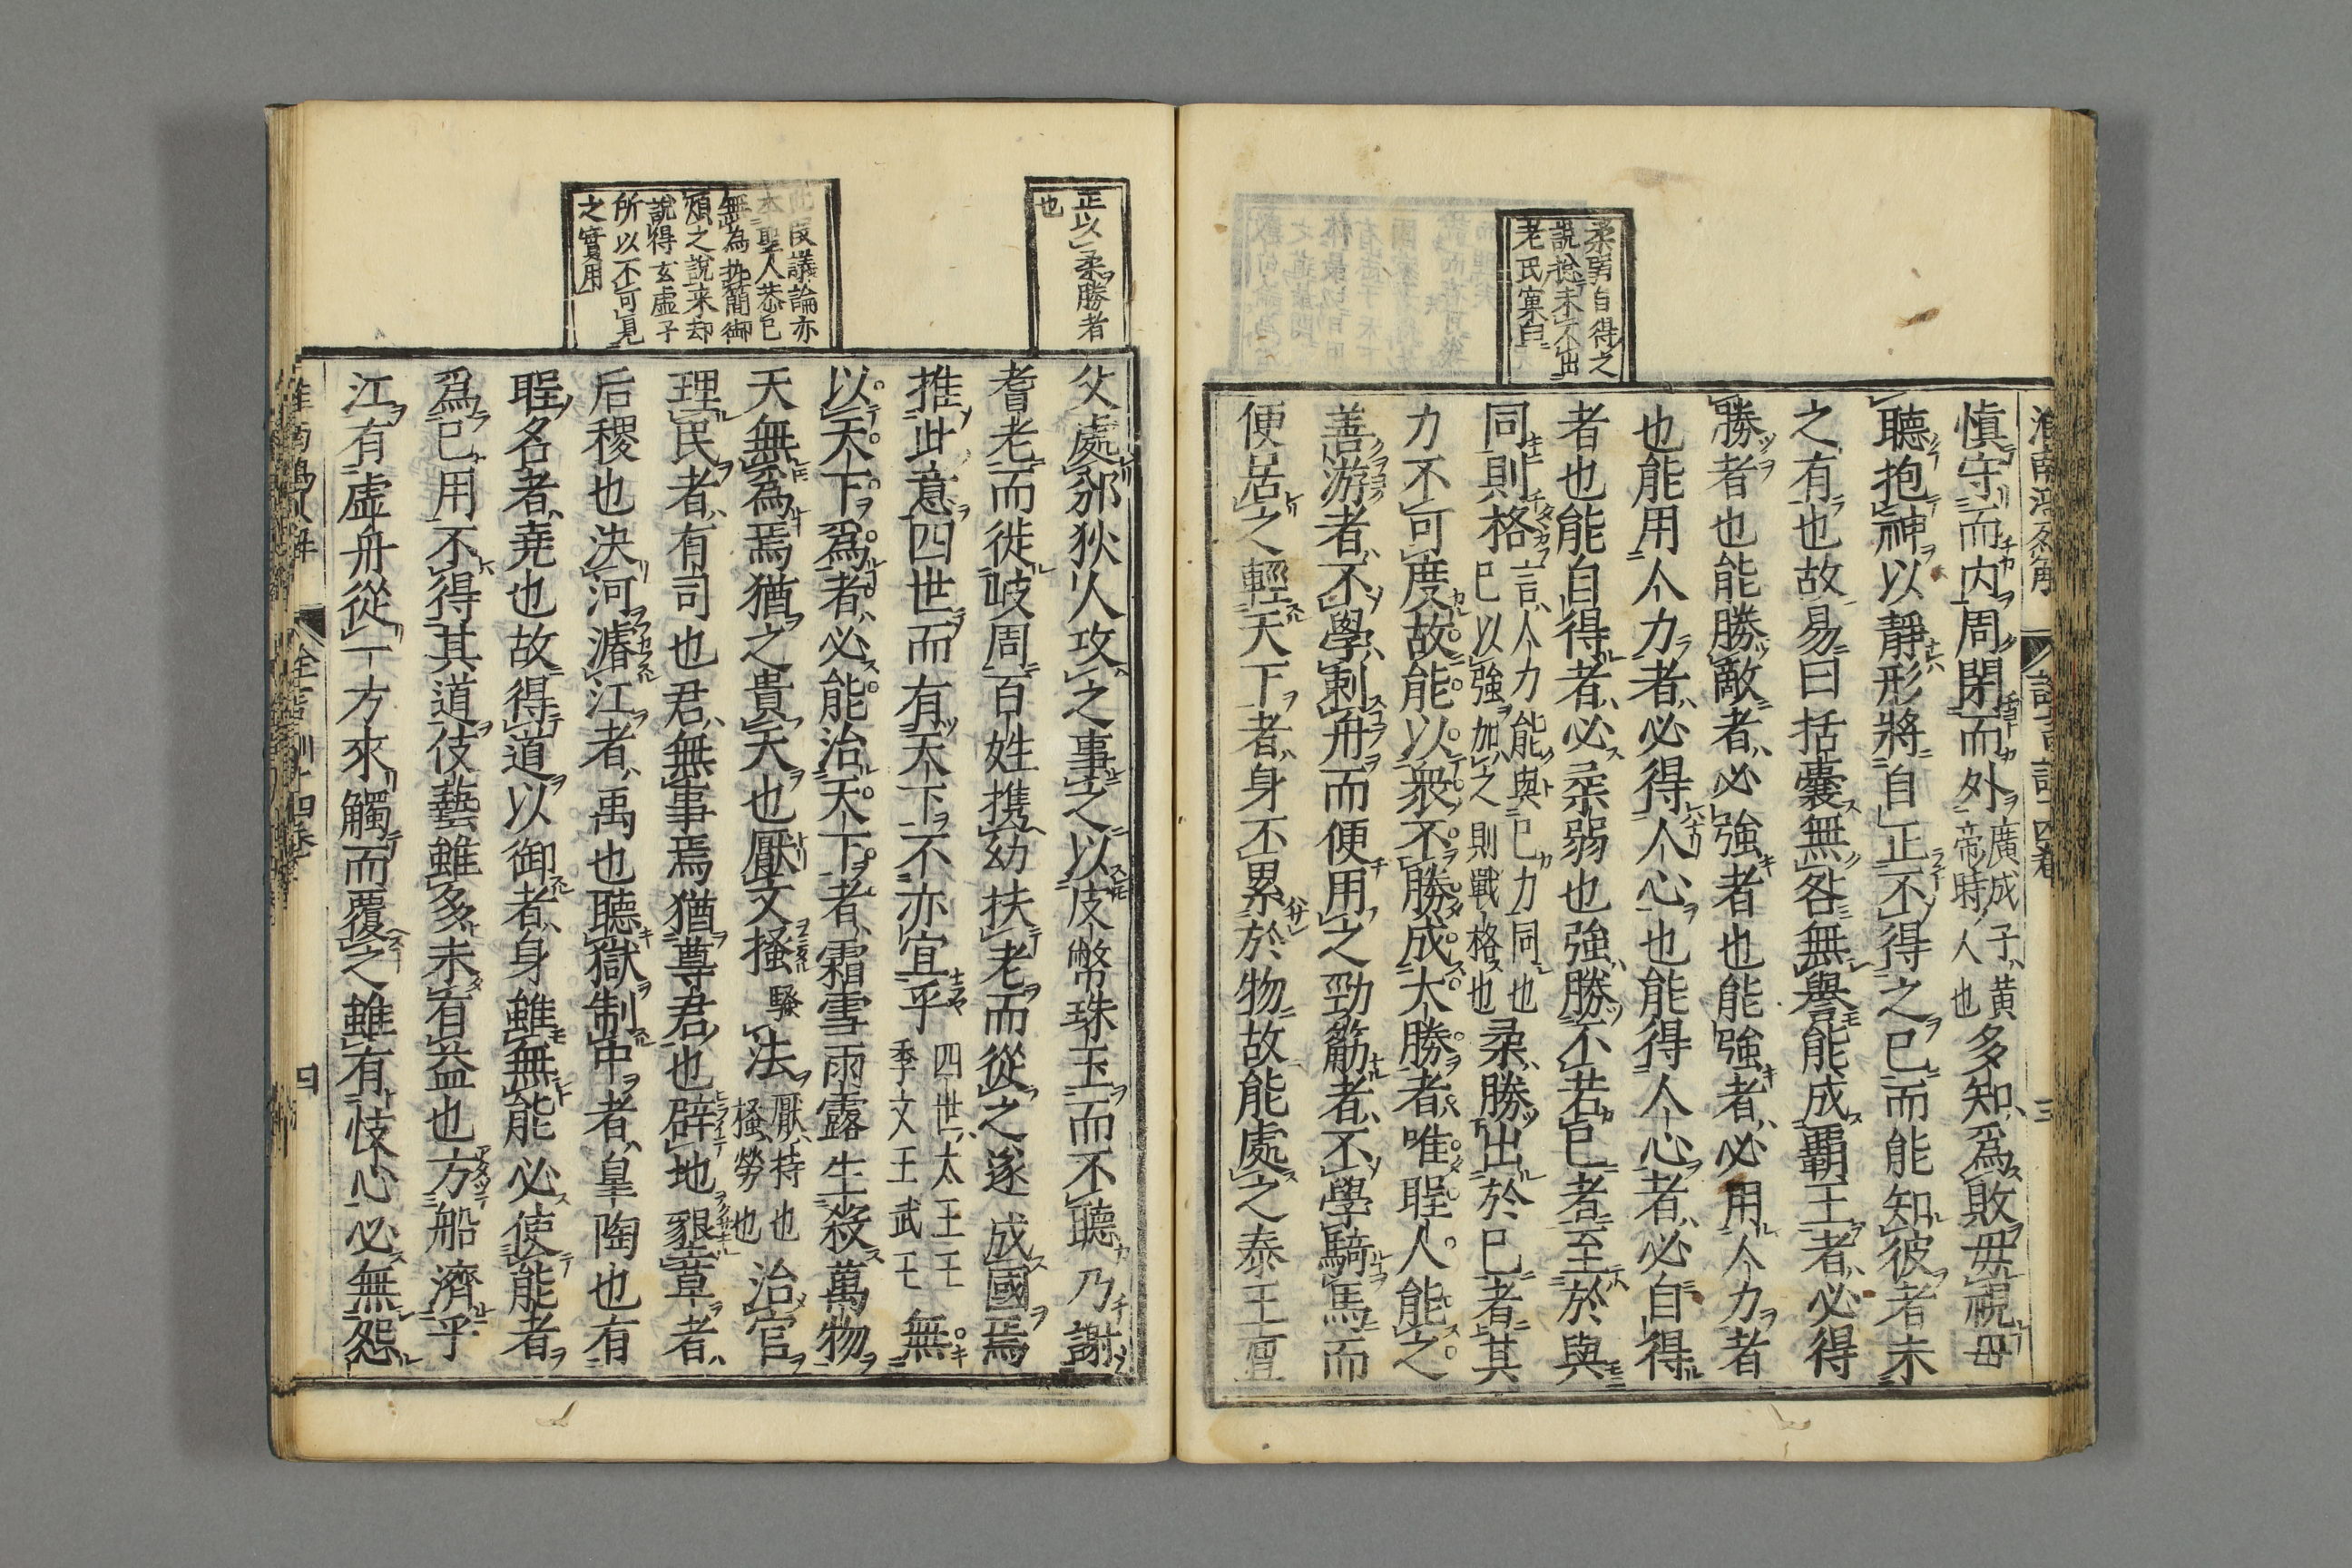 柔弱自得之
說捻未不出
老氏窠臼
慎守而内周閉而外廣成子黃帝時人也多知為敗毋視毋
聽抱神以靜形將自正不得之已而能知彼者未
之有也故易曰括囊無咎無譽能成覇王者必得
勝者也能勝敵者必強者也能強者必用人力者
也能用人力者必得人心也能得人心者必自得
者也能自得者必柔弱也強勝不若已者至於與
同則格言人力能與已力同也已以強加之則戰格也柔勝出於已者其
力不可度故能以衆不勝成大勝者唯聖人能之
善游者不學刺舟而便用之勁觔者不學騎馬而
便居之輕天下者身不累於物故能處之泰王亶
正以柔勝者
也
此段議論亦
本聖人恭已
無為執簡御
煩之說来却
說得玄虛子
所以不可見
之實用
父處邠狄人攻之事之以皮幣珠玉而不聽乃謝
耆老而徙岐周百姓携幼扶老而從之遂成國焉
推此意四世而有天下不亦宜乎四世太王王季文王武王無
以天下爲者必能治天下者霜雪雨露生殺萬物
天無為焉猶之貴天也厭文搔騷法厭持也搔勞也治官
理民者有司也君無事焉猶尊君也辟地豤草者
后稷也決河濬江者禹也聽獄制中者皐陶也有
聖名者堯也故得道以御者身雖無能必使能者
爲已用不得其道伎藝雖多未有益也方船濟乎
江有虛舟從一方來觸而覆之雖有忮心必無怨